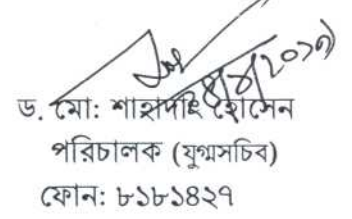 ড. মো: শাহাদাৎ হোসেন
পরিচালক (যুগ্মসচিব)
ফোন: ৮১৮১৪২৭